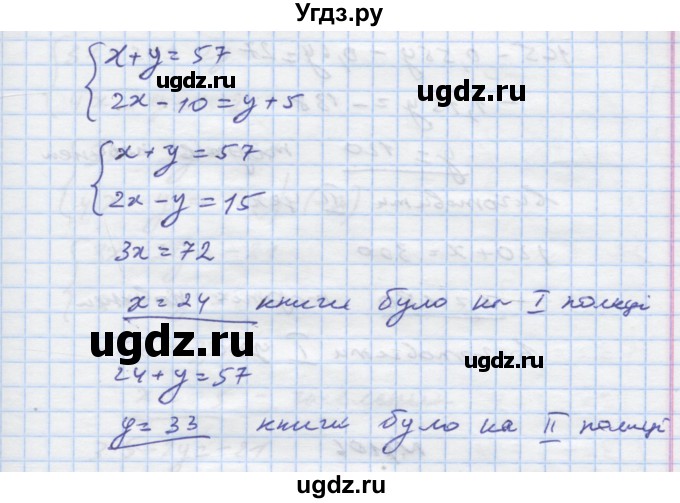 Угдз.ру
x+y=57
ugdz.ru
ugdz.ru
2x-10=y+5
x+y=57
2x-y=15
ugdz.ru
3x=72
x=24 книги було на I полиці
ugdz.ru
24+y=57
y=33 книги було на II полиці
ugdz.ru
ugdz.ru